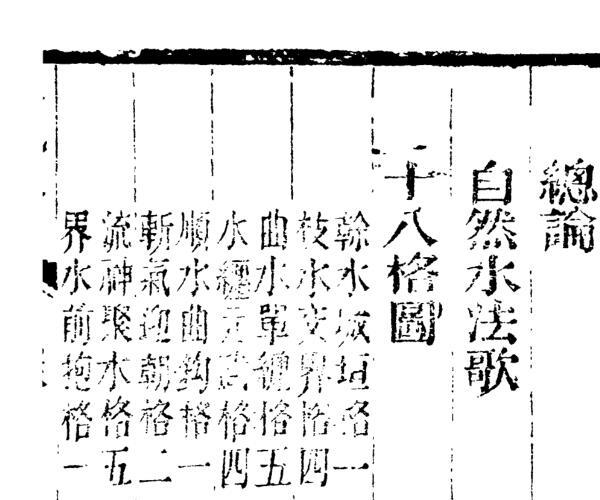 總論
自然水法歌
十八格圖
幹水城垣格一
枝水交界格四
曲水單纏格五
水纏玄武格四
順水曲鈎格一
斬氣迎朝格二
流神聚水格五
界水前抱格一